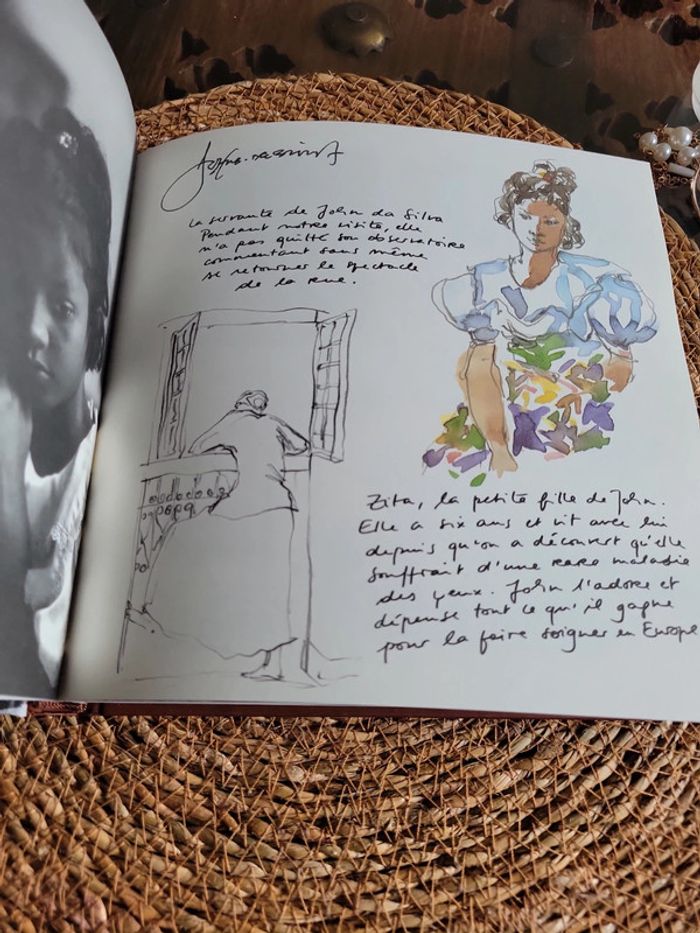 La servante de John da Silva
Pendant notre visite, elle
n'a pas quitté son observatoire
commentant sans même
se retourner le spectacle
de la rue.
Zita, la petite fille de John.
Elle a six ans et vit avec lui
depuis qu'on a découvert qu'elle
souffrait d'une rare maladie
des yeux. John l'adore et
dépense tout ce qu'il gagne
pour la faire soigner en Europe